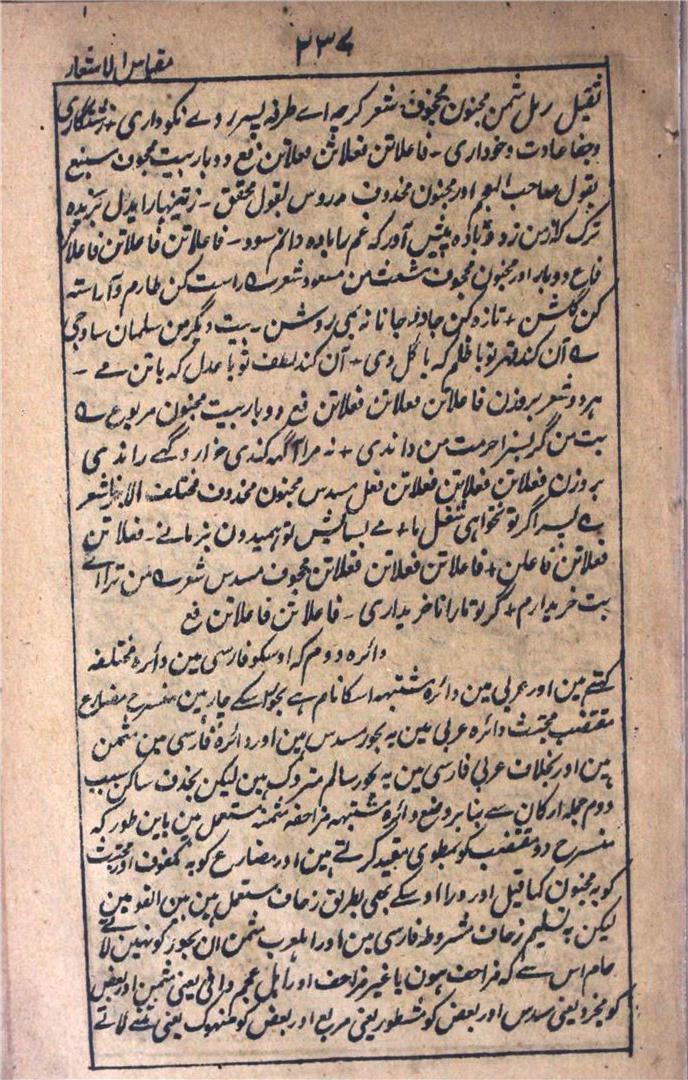 ۲۳۷
مقیاس الاشعار
ثقیل رمل مثمن مخبون مجحوف شعر گرچہ اے طرفہ پسر روے نکو داری +
وجفا عادت و خو داری - فاعلاتن فعلاتن فعلاتن فع دو بار بیت مجحوف
بقول صاحب المعجم اور مخبون محذوف مدروس بقول محقق -
ترک بادہ پیش آور کہ غم را بادہ دانم سود - فاعلاتن فاعلاتن
فاع دو بار اور مخبون مجحوف مسعود شعر راست کن طارم و آراستہ
کن گلشن + تازہ کن جانا نہ بمی روشن - بیت دیگر من سلمان ساوجی
آن کند قہر تو با ظلم کہ با گل دی + آن کند لطف تو با عدل کہ با تن مے -
ہر دو شعر بروزن فاعلاتن فعلاتن فعلاتن فع دو بار بیت مخبون مربوع
بت من گر بسزا حرمت من داندی + نہ مرا گہ کندی خوار و گہے راندی
بروزن فعلاتن فعلاتن فعلاتن فعل مسدس مخبون محذوف مختلف الاجزا شعر
اے پسر اگر تو نخواہی شغل ما + تو ہمیدون بزمانے - فعلاتن
فعلاتن فاعلن + فاعلاتن فعلاتن فعلاتن مجحوف مسدس شعر من ترا اے
بت خریدارم + گر تو مارا نا خریداری - فاعلاتن فاعلاتن فع
دائرہ دوم کہ اوسکو فارسی مین دائرہ مختلفہ
کہتے ہین اور عربی مین دائرہ مشتبہہ اسکا نام ہے بحور اسکے چار ہین منسرح مضارع
مقتضب مجتث دائرہ عربی مین یہ بحور مسدس ہین اور دائرۂ فارسی مین مثمن
ہین اور بخلاف عربی فارسی مین یہ بحور سالم متروک ہین لیکن بحذف ساکن سبب
دوم جملہ ارکان سے بنا بر وضع دائرہ مشتبہہ مزاحفہ مثمنہ مستعمل ہین باین طور کہ
منسرح و مقتضب کو بمطوی مقید کرتے ہین اور مضارع کو بہ مکفوف اور مجتث
کو بہ مخبون کما قیل اور ورا اوسکے بھی بطریق زحاف مستعمل ہین بین القومین
لیکن بہ تسلیم زحاف مشروطہ فارسی مین اور اہل عرب مثمن ان بحور کو نہین لاتے
عام اس سے کہ مزاحف ہون یا غیر مزاحف اور اہل عجم وافی یعنی مثمن اور بعض
کو مجزو یعنی مسدس اور بعض کو مشطور یعنی مربع اور بعض کو منہوک یعنی مثنے لاتے